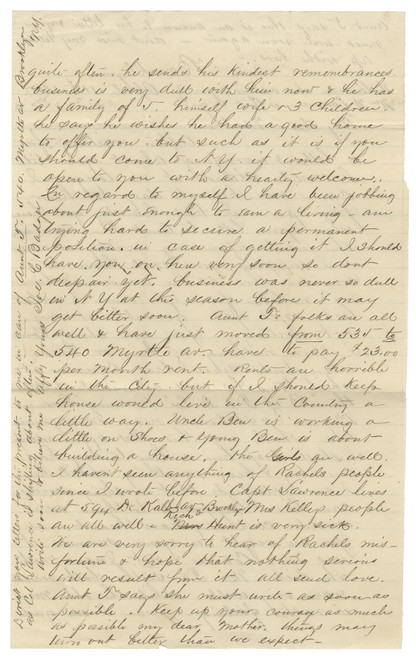 quite often. he sends his kindest remembrances
business is very dull with him now & he has
a family of 5. himself wife & 3 children
he says he wishes he had a good home
to offer you. but such as it is if you
should come to N Y it would be
open to you with a hearty welcome.
In regard to myself I have been jobbing
about just enough to earn a living - am
trying hard to secure a permanent
position. in case of getting it I should
have you on here very soon so dont
despair yet. business was never so dull
in N Y at this season before it may
get better soon. Aunt T's folks are all
well & have just moved from 535 to
540 Myrtle av. have to pay $23.00
per month rent. Rents are horrible
in the City but if I should keep
house would live in the Country a
little way. Uncle Ben is working a
little on Shoes & Young Ben is about
building a house. The Girls are well.
I haven't seen anything of Rachels people
since I wrote before Capt Lawrence lives
at 594 De Kalb av Brookly Mrs Kellys people
are all well - Hunt is very sick.
We are very sorry to hear of Rachels mis-
fortune & hope that nothing serious
will result from it. all send love.
Aunt T says she must write as soon as
possible. keep up your courage as much
as possible my dear Mother. things may
turn out better than we expect -
Direct your letter for the present to me in care of Aunt T. 540. Myrtle av Brooklyn
N.Y.
as Cl Lawrence is
write soon